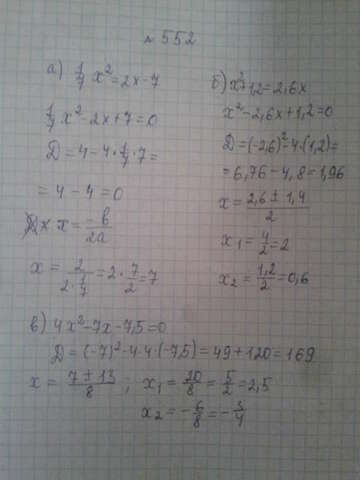 №552
а) 1/7 x² = 2x - 7
1/7 x² - 2x + 7 = 0
D = 4 - 4 · 1/7 · 7 =
= 4 - 4 = 0
x = -b/2a
x = 2/(2 · 1/7) = 2 · 7/2 = 7
б) x² + 1,2 = 2,6x
x² - 2,6x + 1,2 = 0
D = (-2,6)² - 4 · (1,2) =
= 6,76 - 4,8 = 1,96
x = (2,6 ± 1,4)/2
x₁ = 4/2 = 2
x₂ = 1,2/2 = 0,6
в) 4x² - 7x - 7,5 = 0
D = (-7)² - 4 · 4 · (-7,5) = 49 + 120 = 169
x = (7 ± 13)/8 ; x₁ = 20/8 = 5/2 = 2,5
x₂ = -6/8 = -3/4